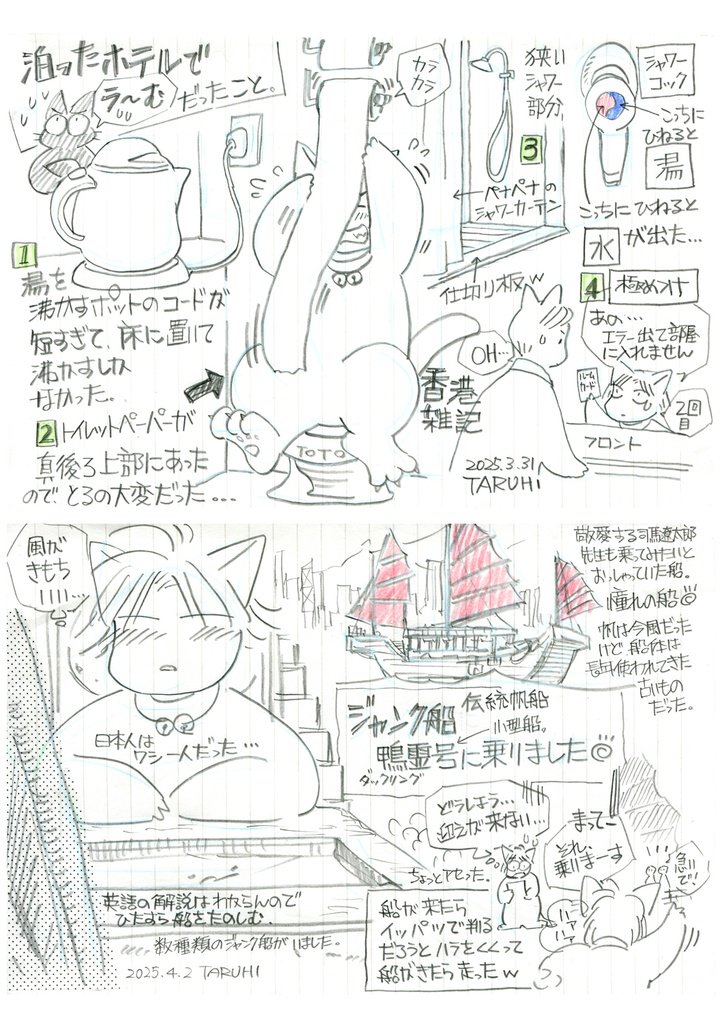 泊ったホテルで
ラ～むだったこと。
1
湯を
沸かすポットのコードが
短すぎて、床に置いて
沸かすしか
なかった。
2 トイレットペーパーが
真後ろ上部にあった
のでとるの大変だった…
カラ
カラ
TOTO
狭い
シャワー
部分
3
ペナペナの
シャワーカーテン
仕切り板w
シャワー
コック
こっちに
ひねると
湯
こっちにひねると
水が出た…
4 極めつけ
あの…
エラー出て部屋
に入れません
ルーム
カード
2回目
フロント
OH…
香港
雑記
2025.3.31
TARUHI
風が
きもち
いいい…
日本人は
ワシ一人だった…
英語の解説はわからんので
ひたすら船をたのしむ。
数種類のジャンク船がいました。
2025.4.2 TARUHI
敬愛する司馬遼太郎
先生も乗ってみたいと
おっしゃっていた船。
憧れの船
帆は今風だった
けど船体は
長年使われてきた
古いもの
だった。
ジャンク船
伝統帆船
小型船。
鴨霊号に乗りました
ダックリング
どうしよう…
迎えが来ない…
ちょっとアセった。
まってー
それ、
乗りまーす
急い
で!
ハー
ハア
船が来たら
イッパツで判る
だろうとハラをくくって
船がきたら走ったw